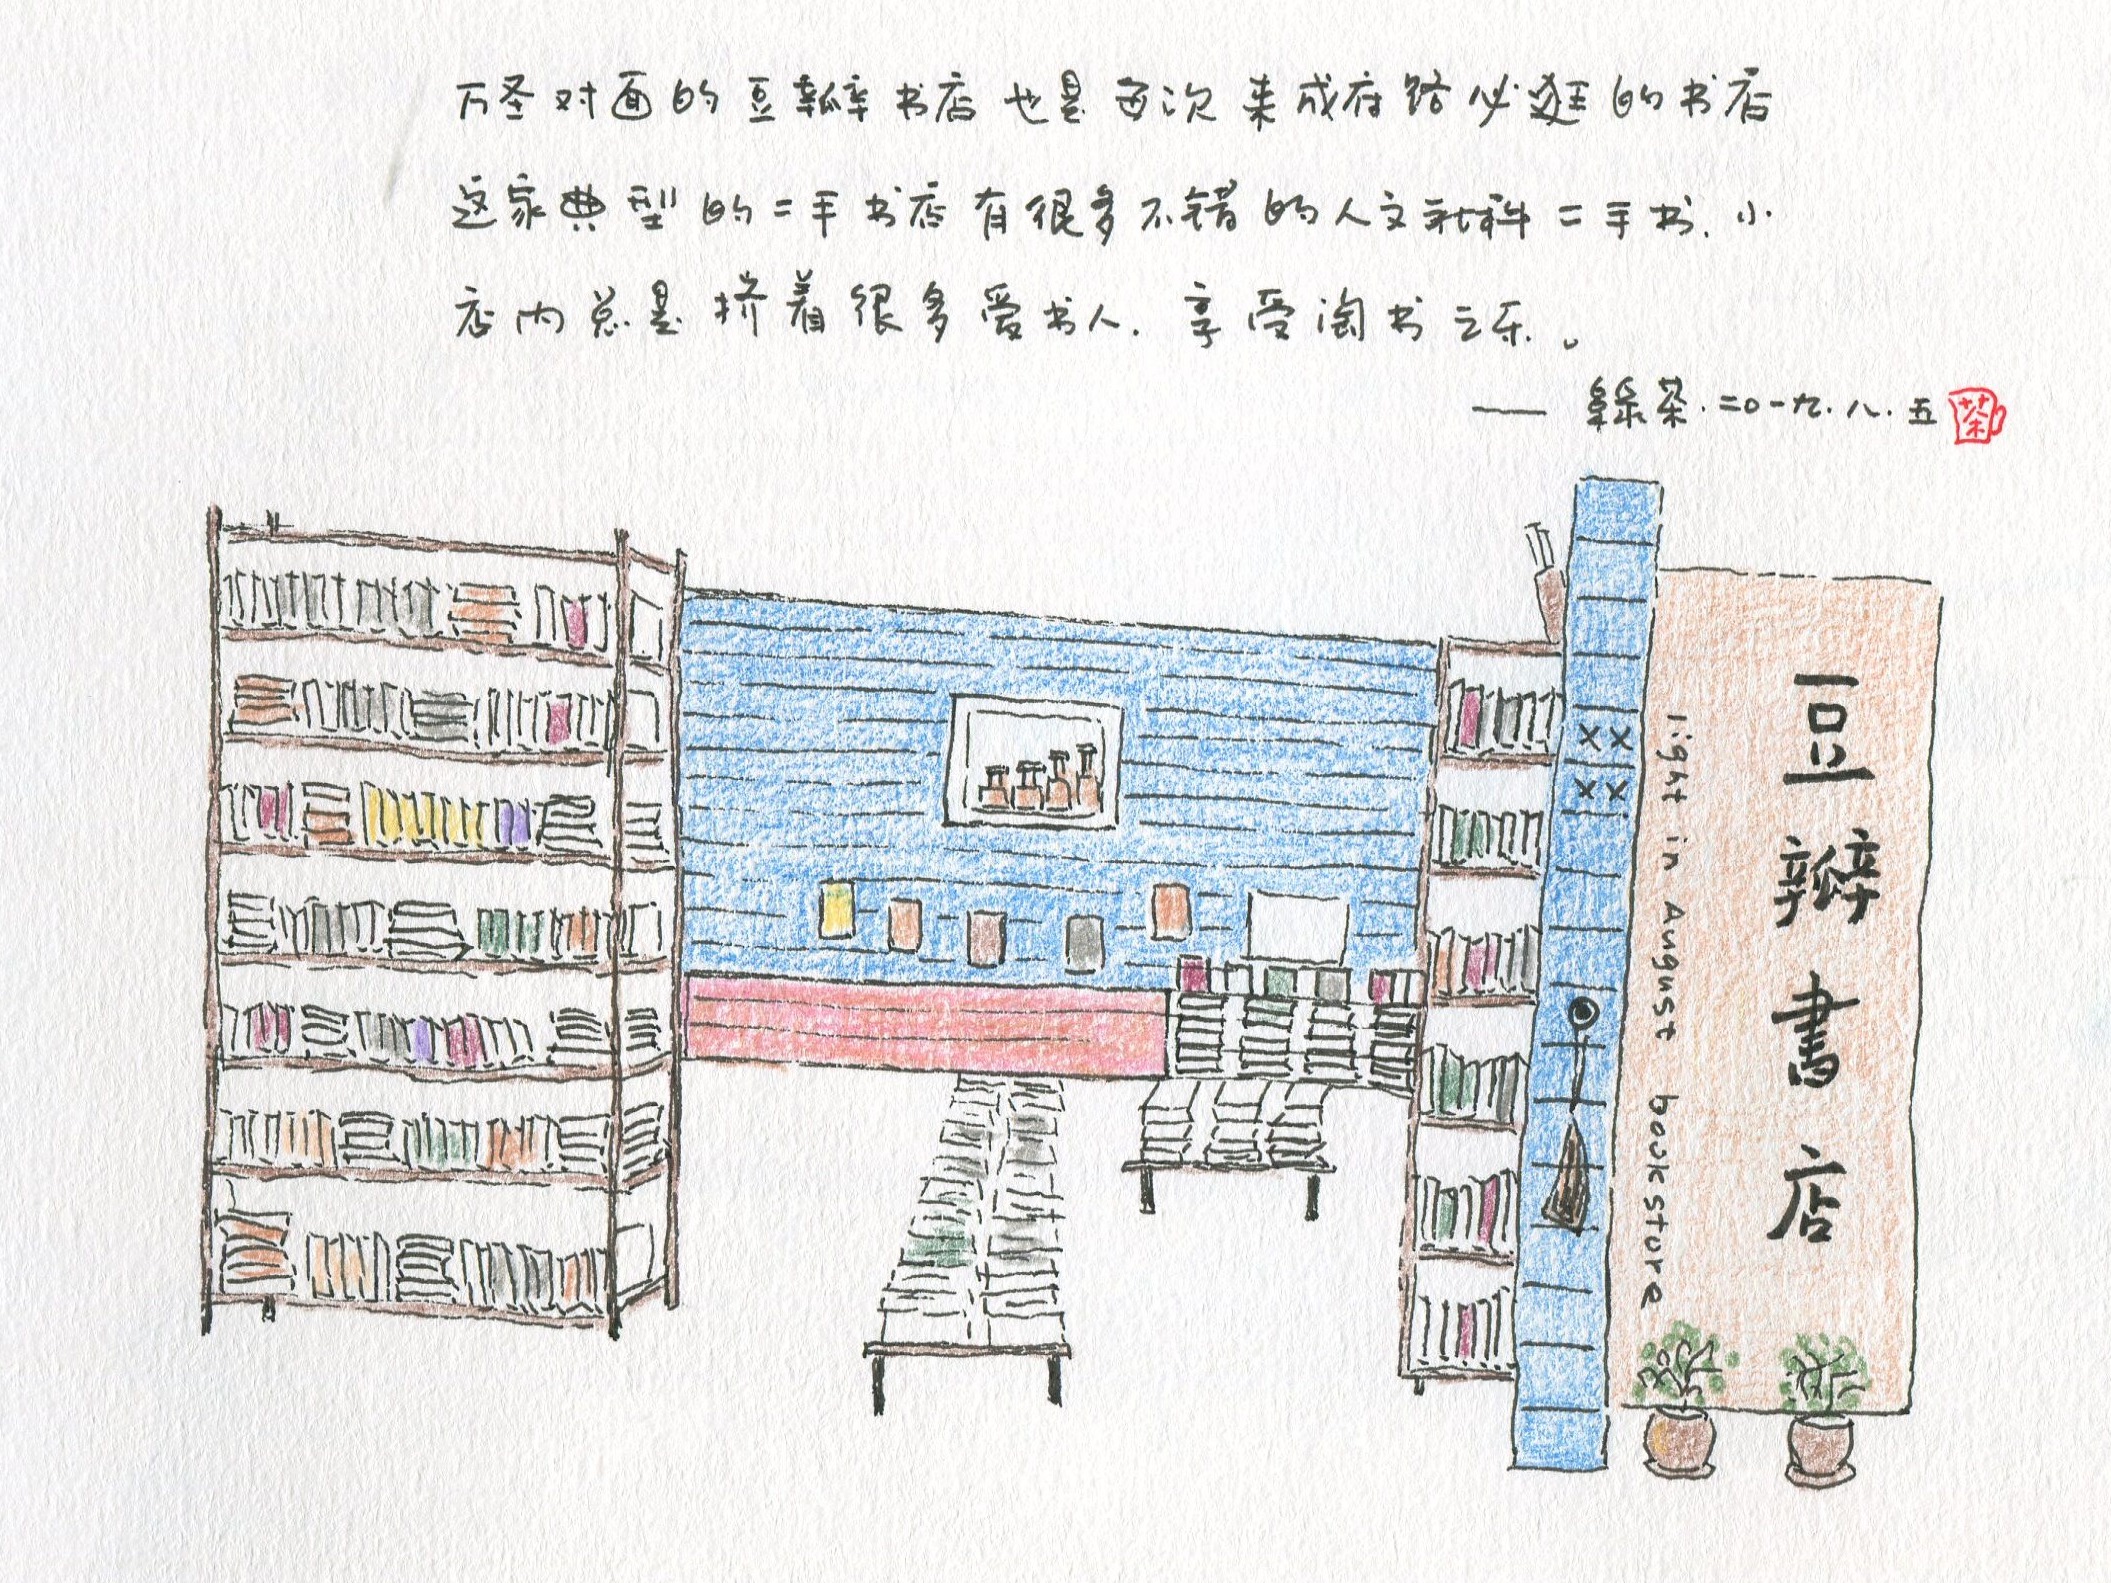 万圣对面的豆瓣书店也是每次来成府路必逛的书店
这家典型的二手书店有很多不错的人文社科二手书.小
店内总是挤着很多爱书人.享受淘书之乐。
——綠茶.二〇一九.八.五
茶
豆瓣書店
light in August bookstore